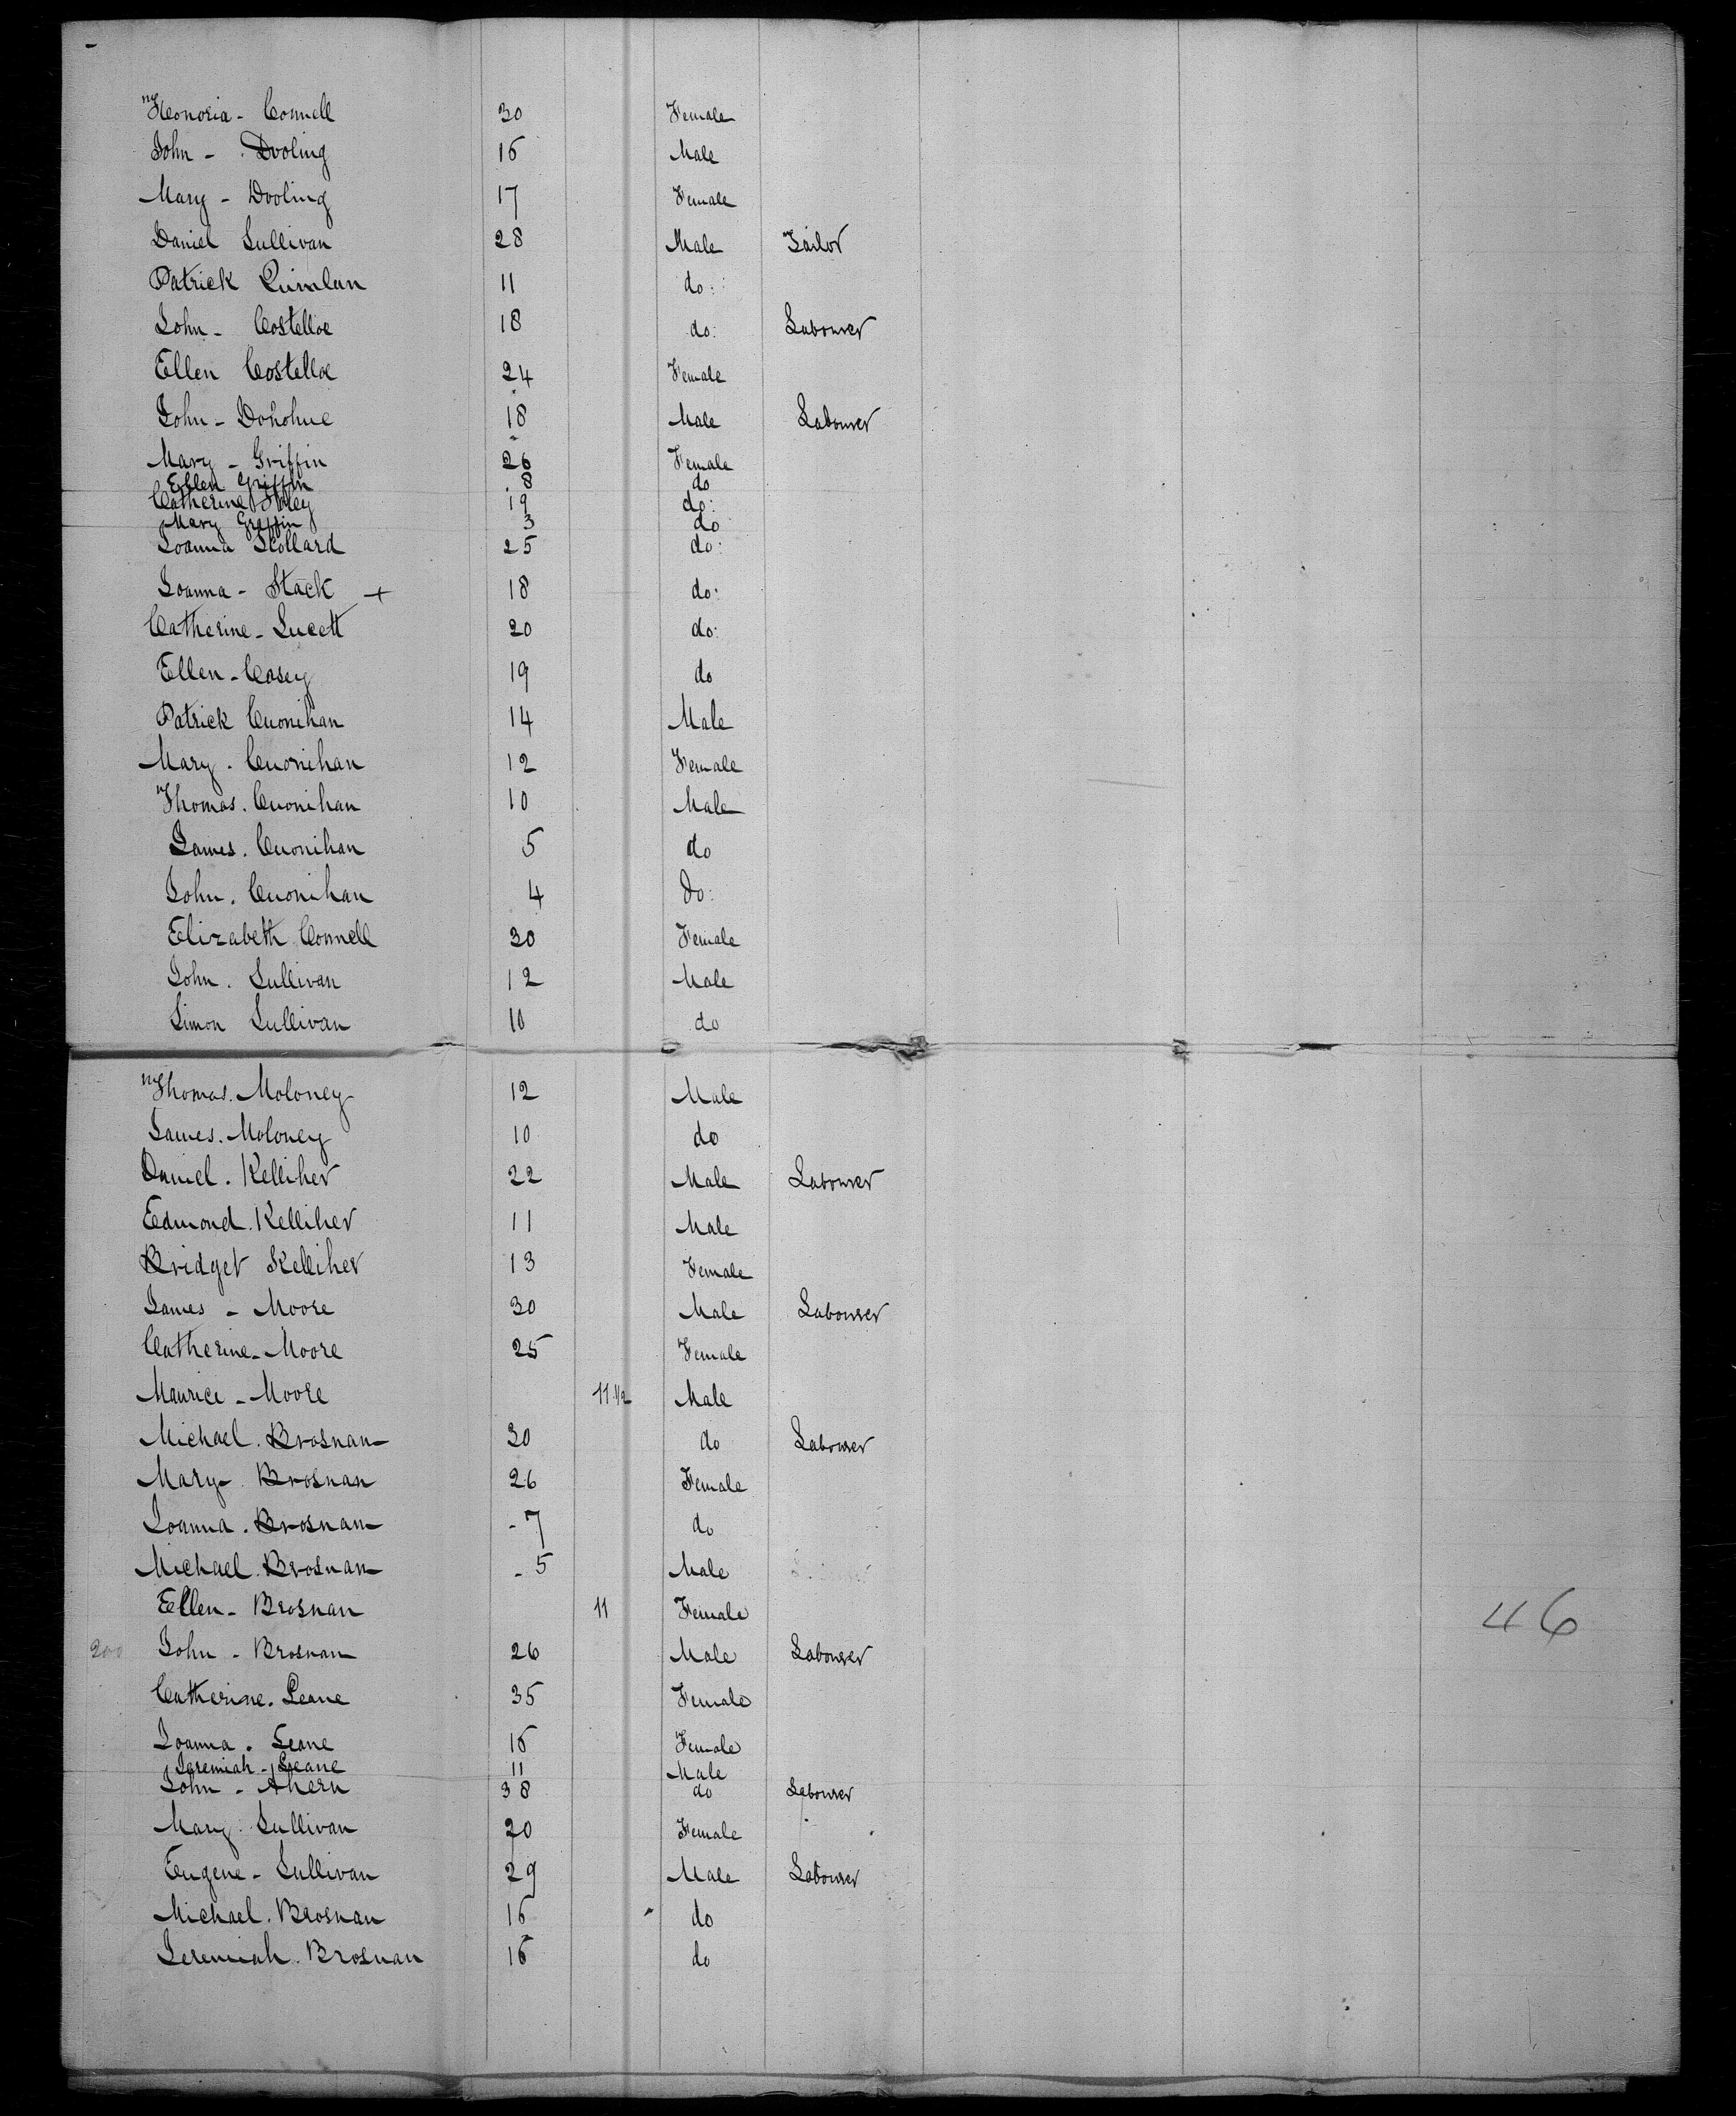 Honoria - Connell 30 Female
John - Dooling 16 Male
Mary - Dooling 17 Female
Daniel Sullivan 28 Male Tailor
Patrick Quinlan 11 do:
John - Costelloe 18 do: Labourer
Ellen Costelloe 24 Female
John - Donohue 18 Male Labourer
Mary - Griffin 26 Female
Ellen Griffin 8 do
Catherine 19 do:
Mary Griffin 3 do
Joanna Scollard 25 do:
Joanna - Stack + 18 do:
Catherine - Lucett 20 do:
Ellen - Casey 19 do
Patrick Cuonihan 14 Male
Mary . Cuonihan 12 Female
Thomas . Cuonihan 10 Male
James . Cuonihan 5 do
John . Cuonihan 4 do:
Elizabeth Connell 30 Female
John . Sullivan 12 Male
Simon Sullivan 10 do
Thomas . Moloney 12 Male
James . Moloney 10 do
Daniel . Kelliher 22 Male Labourer
Edmond . Kelliher 11 Male
Bridget Kelliher 13 Female
James - Moore 30 Male Labourer
Catherine - Moore 25 Female
Maurice - Moore 11 1/2 Male
Michael . Brosnan 30 do Labourer
Mary . Brosnan 26 Female
Joanna . Brosnan - 7 do
Michael . Brosnan - 5 Male
Ellen - Brosnan 11 Female
46
200 John - Brosnan 26 Male Labourer
Catherine . Leane 35 Female
Joanna . Leane 16 Female
Jeremiah - Leane 11 Male
John - Ahern 38 do Labourer
Mary . Sullivan 20 Female
Eugene - Sullivan 29 Male Labourer
Michael . Brosnan 16 do
Jeremiah . Brosnan 16 do